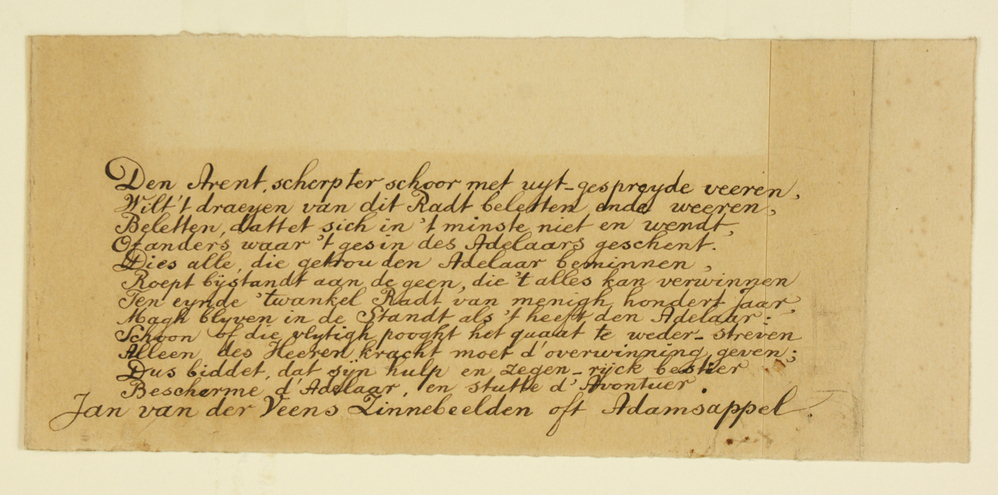 Den Arent, scherp ter schoor met uyt-gespreyde veeren,
Wilt 't draeyen van dit Radt beletten ende weeren,
Beletten, dattet sich in 't minste niet en wendt,
Of anders waar 't gesin des Adelaars geschent.
Dies alle, die getrou den Adelaar beminnen,
Roept bijstandt aan de geen, die 't alles kan verwinnen
Ten eynde 't wankel Radt van menigh hondert Jaar
Magh blyven in de Standt als 't heeft den Adelaar:
Schoon of die vlytigh pooght het quaat te weder-streven
Alleen des Heeren kracht moet d'overwinning geven;
Dus biddet, dat syn hulp en zegen-rijck bestier
Bescherme d'Adelaar, en stutte d'Avontuer.
Jan van der Veens Zinnebeelden oft Adamsappel.